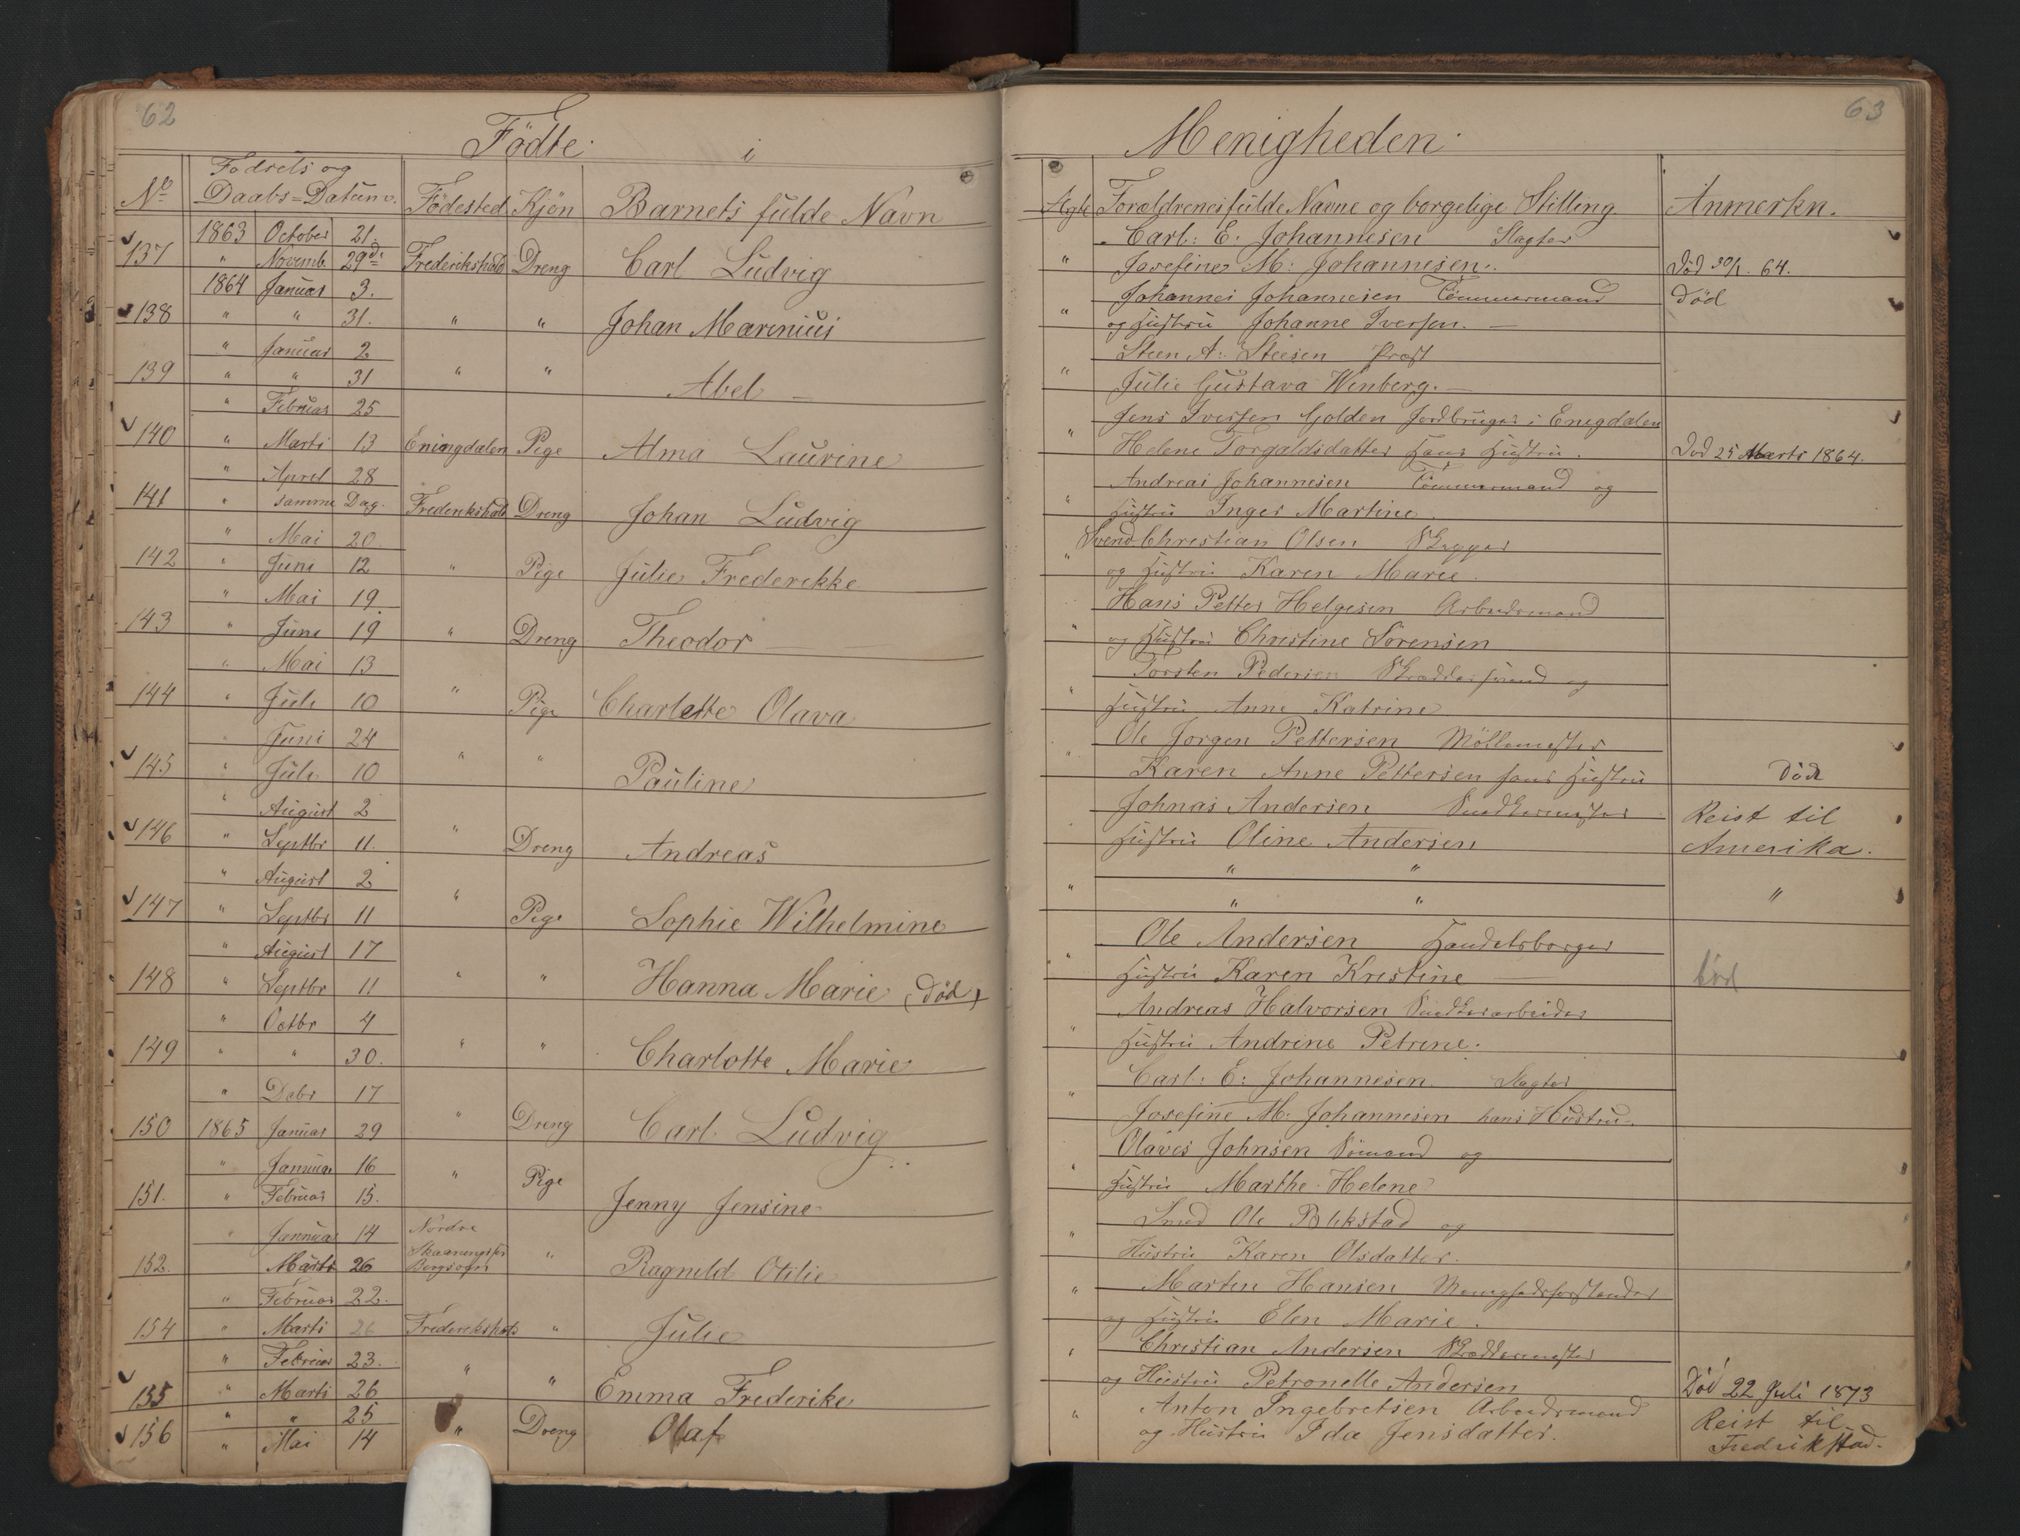 62
Födte. i
Nº Fødsels og Daabs=Datum. Födested Kjön Barnets fulde Navn
1863 October 21.
137 " Novemb. 29d: Frederikshald Dreng Carl Ludvig
1864 Januar 3.
138 " " 31. " " Johan Marinius
" Januar 2
139 " " 31 " " Abel
" Februar 25
140 " Marti 13 Eningdalen Pige Alma Laurine
" Aprel 28
141 " samme Dag. Frederikshald Dreng Johan Ludvig
" Mai 20
142 " Juni 12 " Pige Julie Frederikke
" Mai 19
143 " Juni 19 " Dreng Theodor
" Mai 13
144 " Juli 10 " Pige Charlotte Olava
Juni 24
145 " Juli 10 " " Pauline
" August 2
146 " Septbr 11 " Dreng Andreas
" August 2
147 " Septbr 11 " Pige Sophie Wilhelmine
" August 17
148 " Septbr 11 " " Hanna Marie (död)
" Octbr 4
149 " " 30. " " Charlotte Marie
" Debr 17
150 1865 Januar 29 " Dreng Carl Ludvig
" Januar 16
151. " Februar 15. " Pige Jenny Jensine
" Januar 14 Nordre
152. Marts 26 " Ragnild Otilie
" Februar 22.
154 " Marti 26 Frederikshald " Julie
" Februar 23.
155 " Marti 26 " " Emma Frederike
" " 25
156 " Mai 14 " Dreng Olaf
63
Menigheden.
Ægte Forældrenes fulde Navne og borgelige Stilling. Anmerkn.
Carl: E: Johannesen Slagter
" Josefine M: Johannesen. Död 30/1. 64.
Johannes Johannesen Tömmermand Död
" og Hustru Johanne Iversen.
Steen A: Steesen Præst
" Julie Gustava Winberg.
Jens Iversen Golden Jordbruger i Enigdalen
" Helene Torgaldsdatter Hans Hustru. Död 25 Marts 1864.
Andreas Johannesen Tömmermand og
" Hustru Inger Martine.
Svend Christian Olsen Skipper
" og Hustru Karen Marie.
Hans Petter Helgesen Arbeidsmand
" og Hustru Christine Sörensen
Torsten Pedersen Skreddersvend og
" Hustru Anne Katrine
Ole Jorgen Pettersen Möllemester
" Karen Anne Pettersen hans Hustru Död
Johnas Andersen Snedkermester Reist til
Hustru Oline Andersen Amerika.
" "
" " " "
Ole Andersen Handelsborger
" Hustru Karen Kristine död
Andreas Halvorsen Snedkerarbeider
" Hustru Andrine Petrine.
Carl: E: Johannesen. Slagter
" Josefine M. Johannesen hans Hustru.
Olaves Johnsen Sömand og
" Hustru Marthe Helene
Smed Ole Blikstad og
" Hustru Karen Olsdatter.
" Marten Hansen Menighedsforstander
og Hustru Elen Marie.
" Christian Andersen Skreddermester
og Hustru Petronelle Andersen Död 22 Juli 1873
" Anton Ingebretsen Arbeidsmand Reist til
og Hustru Ida Jensdatter. Fredrikstad.